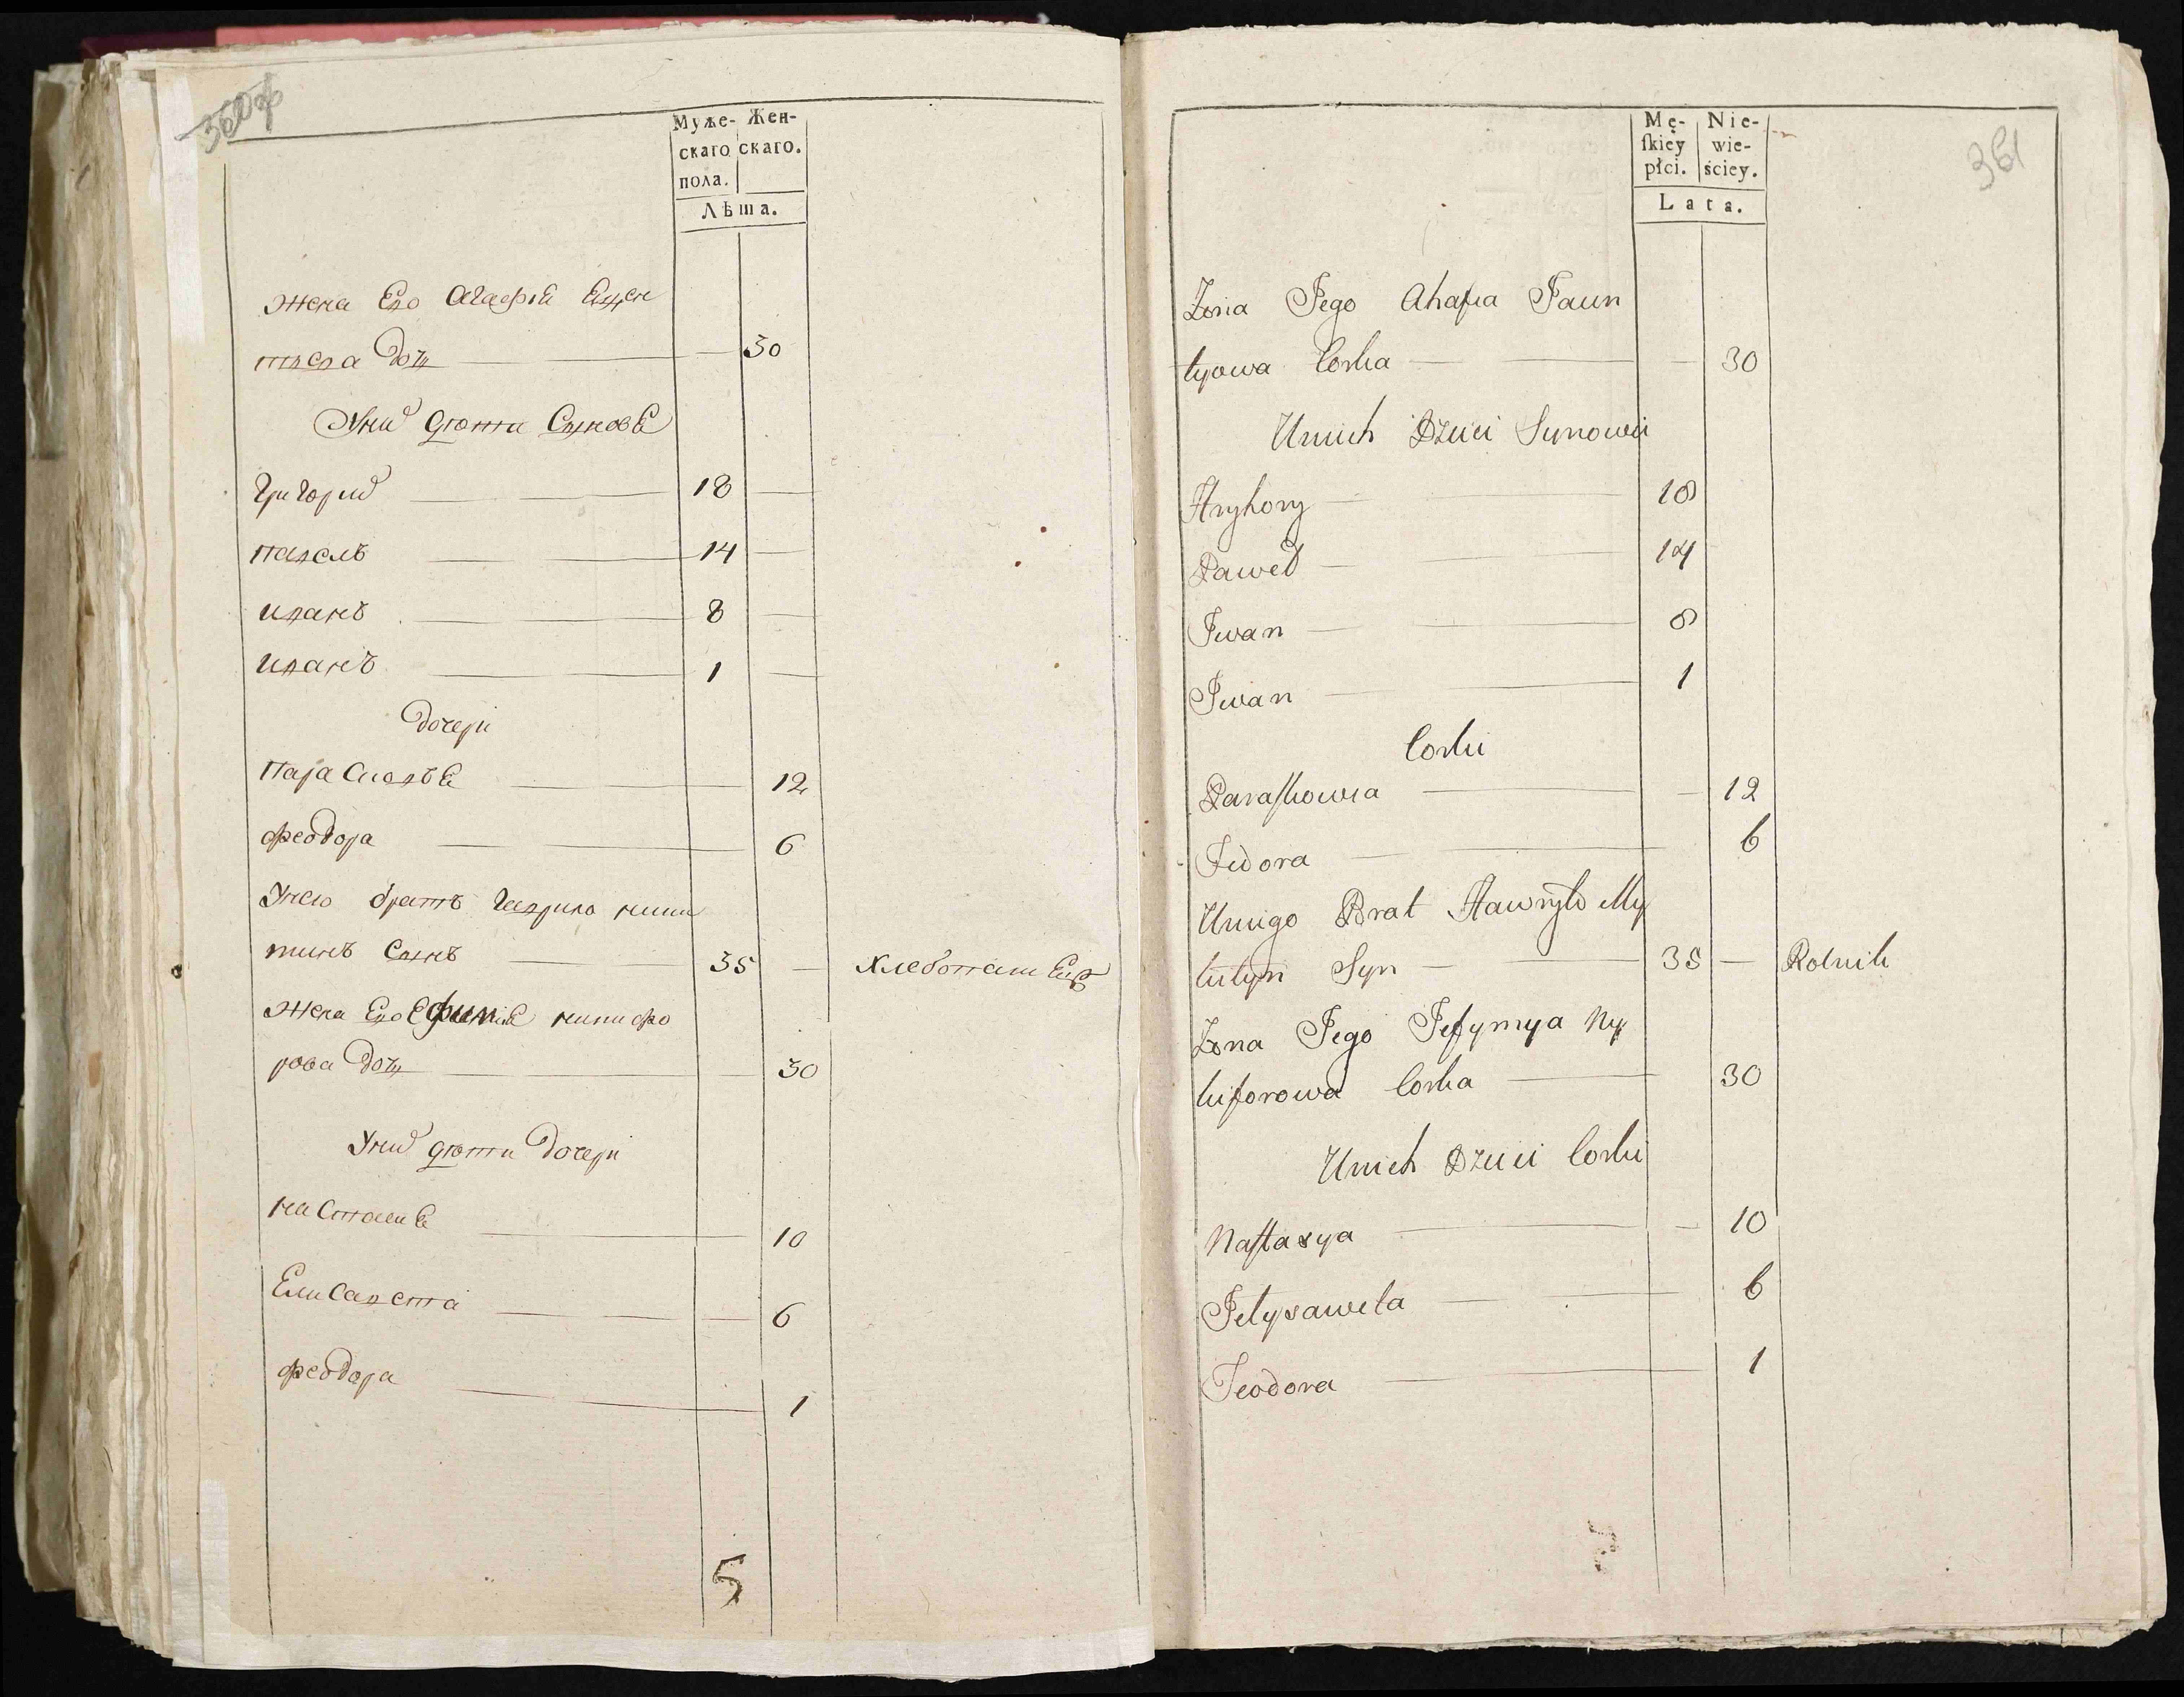 Муже- Жен-
скаго скаго.
пола.
Лѣта.
жена Его Агафиа
дочь — 30
У них дети Сынове
Григорий 18 —
Павелъ 14 —
иванъ 8 —
иванъ 1 —
дочери
Парасковьа 12
феодора 6
У него братъ Гаврило ники
тинъ Сынъ 35 — хлебопашец
жена Его Ефимиа никифо
рова дочь 30
У них дети дочери
настасиа 10
Елисавета — 6
феодора 1
5
361
Mę- Nie-
ſkiey wie-
płci. ściey.
Lata.
Żona Jego Ahafia Jawn
tyowa Corka — 30
U nich Dzieci Synowie
Hryhory 18
Paweł 14
Iwan 8
Iwan 1
Corki
Paraſkowia — 12
Fedora 6
U niego Brat Hawryło My
kityn Syn 35 — Rolnik
Żona Jego Jefymya Ny
kiforowa Corka 30
U nich Dzieci Corki
Naſtasya — 10
Jelysaweta 6
Feodora 1